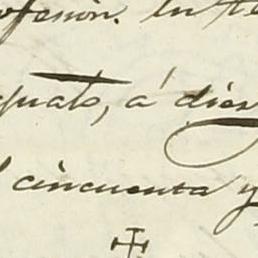 ofesión. En te
quato, á diez
cincuenta y